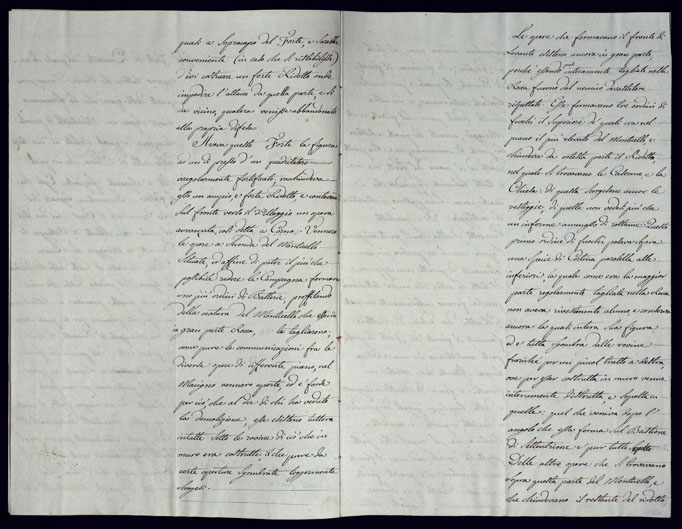 quali a Sopracapo del Forte, e Sarebbe
conveniente (in caso che si ristabilisse)
d'ivi costruire un forte Ridotto onde
impedire l'attacco da quella parte, e di
da vicino, qualora venisse abbandonato
alla propria difesa.
Aveva questo Forte la figura
ac un di presso d'un quadrilatero
irregolarmente fortificato, racchiudeva
esso un ampio, e forte Ridotto, e conteneva
Sul fronte verso il Villaggio un opera
avvanzata, così detta a Corno. Vennero
le opere a Seconda del Monticello
Situate, ed affine di poter il più che
possibile radere la Campagna formavano
più ordini di Batterie, profittando
della natura del Monticello che essendo
in gran parte Roca, la tagliarono,
come pure le communicazioni fra le
diverse opere di differente piano, nel
Macigno vennero aperte, ed è forse
per ciò, che al dir di chi ha veduto
la demolizione esse esistono tuttora
intatte Sotto le rovine di ciò che in
muro era costrutto. Il che pure da
certe aperture Sgombrate leggermente
Scorgesi.
Le opere che formavano il fronte di
Levante esistono ancora in gran parte,
perché essendo interamente tagliate nella
Roca furono dal nemico devastatore
rispettati. Esse formavano tre ordini di
fuochi, il Superiore di quali era nel
piano il più elevato del Monticello e
chiudeva da codesta parte il Ridotto,
nel quale si trovavano le Caserme, e la
Chiesa: di questa Sorgelsene ancor le
vestiggie, di quelle non vedesi più che
un informe ammasso di rottami. Questo
primo ordine di fuochi poteva Sopra
una Spezie di Cortina paralella alle
inferiori, la quale come era la maggior
parte regolarmente tagliata nella Roca
non aveva rivestimento alcuno, e conserva
ancora la quasi intera Sua figura
ed è tutta Sgombra delle rovine
fuorché per un picol tratto a destra,
ove per esser costrutta in muro venne
interamente distrutta, e Sepolta in
quelle; quel che veniva dopo l'
angolo che essa forma Sul Bastione
di Settentrione è pur tutto
Delle altre opere che Si trovavano
Sopra questa parte del Monticello, e
che chiudevano il restante del ridotto